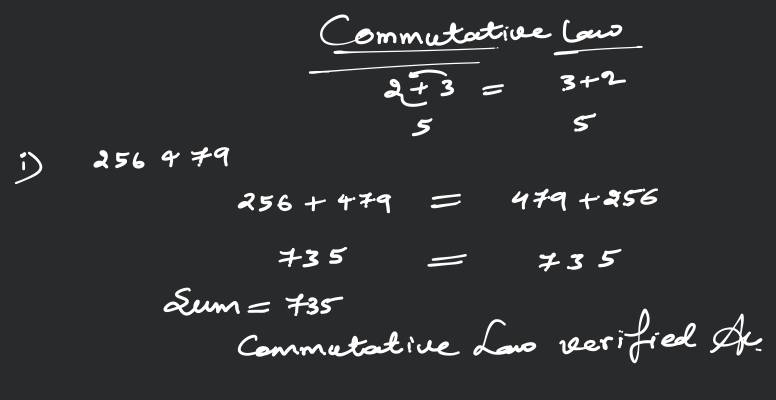 Commutative Law
2+3 = 3+2
5 5
i) 256 479
256 + 479 = 479 + 256
735 = 735
Sum = 735
Commutative Law verified